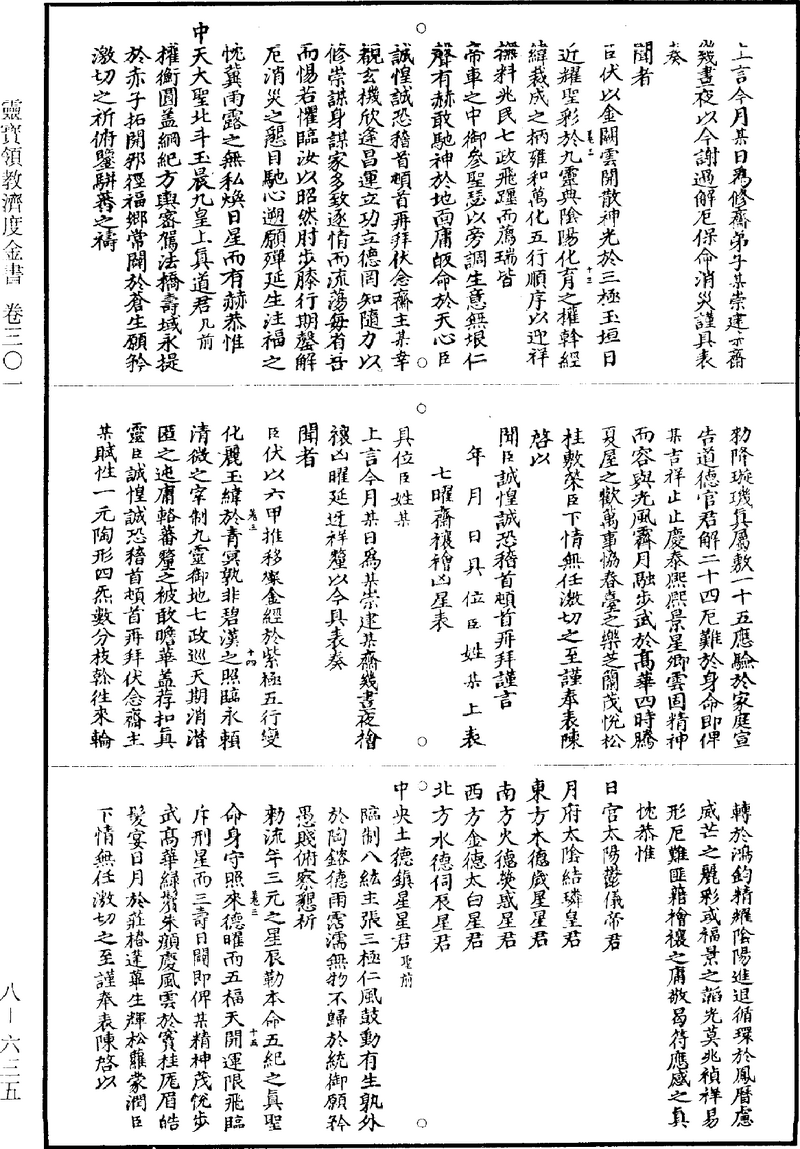 上言今月某日為修齋弟子某崇建亦齋
幾晝夜以今謝過解厄保命消災謹具表
奏
聞者
臣伏以金闕雲開散神光於三極玉垣日
近耀聖彩於九靈典陰陽化育之權斡經
緯裁成之柄雍和萬化五行順序以迎祥
撫料兆民七政飛躔而薦瑞皆
帝車之中御參聖瑟以旁調生意無垠仁
聲有赫敢馳神於地而庸皈命於天心臣
誠惶誠恐稽首頓首再拜伏念齋主某幸
觀玄機欣逢昌運立功立德罔知隨力以
修崇謀身謀家多致逐情而流蕩每有吾
而惕若懼臨汝以昭然肘步膝行期罄解
厄消災之懇目馳心遡願殫延生注福之
忱冀雨露之無私煥日星而有赫恭惟
中天大聖北斗玉晨九皇上真道君九前
權衡圓蓋綱紀方輿密駕法橋壽域永提
於赤子拓開邪徑福鄉常闢於蒼生願矜
激切之祈俯鑒駢蕃之禱
卷三
十三
勑降璇璣真屬敷一十五應驗於家庭宣
告道德官君解二十四厄難於身命即俾
某吉祥止止慶泰熙熙景星卿雲固精神
而容與光風霽月融步武於高華四時騰
夏屋之歡萬事協春臺之樂芝蘭茂悅松
桂敷榮臣下情無任激切之至謹奉表陳
啓以
聞臣誠惶誠恐稽首頓首再拜謹言
年月日具位臣姓某上表
七曜齋禳禬凶星表
具位臣姓某
上言今月某日為某崇建某齋幾晝夜禬
禳凶曜延迓祥釐以今具表奏
聞者
臣伏以六甲推移燦金經於紫極五行變
化麗玉緯於青冥孰非碧漢之照臨永賴
清微之宰制九靈御地七政巡天期消潛
匿之迹庸輅蕃釐之被敢瞻華蓋荐扣真
靈臣誠惶誠恐稽首頓首再拜伏念齋主
某賦性一元陶形四炁數分枝榦往來輪
卷三
十四
轉於鴻鈞精耀陰陽進退循環於鳳曆慮
威芒之麗彩或福景之韜光莫兆禎祥易
形厄難匪藉禬禳之庸敬曷符應感之真
忱恭惟
日宮太陽鬱儀帝君
月府太陰結璘皇君
東方木德歲星星君
南方火德熒惑星君
西方金德太白星君
北方水德伺辰星君
中央土德鎮星星君聖前
臨制八紘主張三極仁風鼓動有生孰外
於陶鎔德雨霑濡無物不歸於統御願矜
愚賤俯察懇祈
勑流年三元之星辰勒本命五紀之真聖
命身守照來德曜而五福天開運限飛臨
斥刑星而三壽日闢即俾某精神茂悅步
武高華綠鬢朱顏慶風雲於寶桂厖眉皓
髮宴日月於莊椿蓬蓽生輝松蘿蒙潤臣
下情無任激切之至謹奉表陳啓以
卷三
十五
靈寶領教濟度金書 卷三〇一
八—六三五